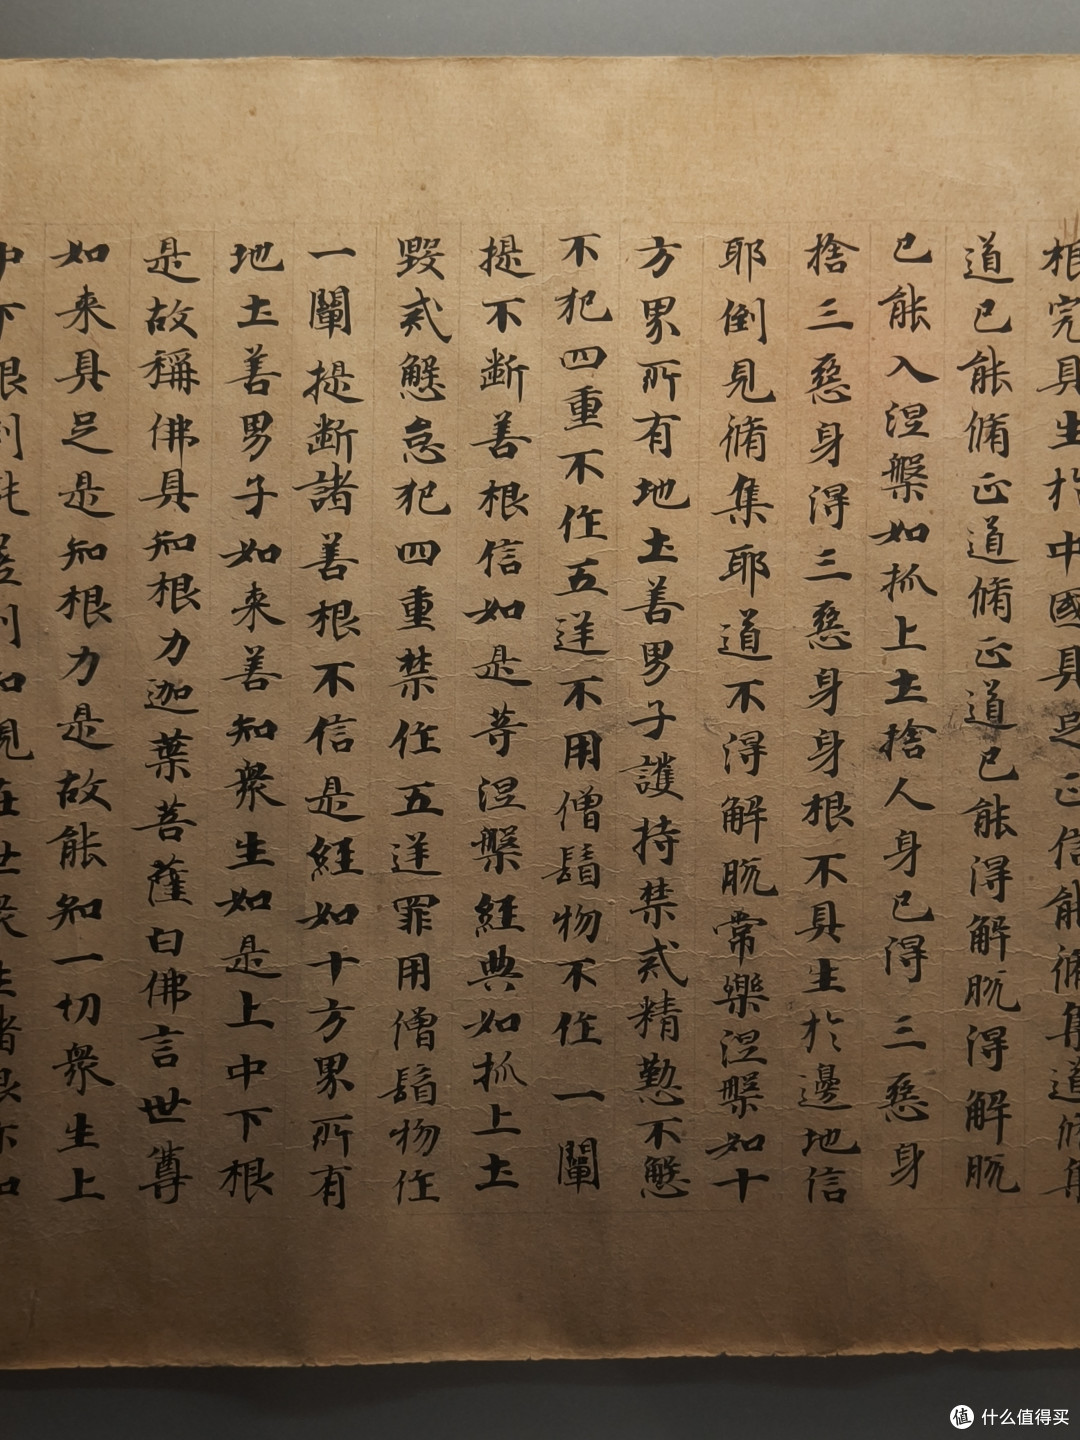 根完具生於中國具足正信能脩集道脩集
道已能脩正道脩正道已能得解脱得解脱
已能入涅槃如抓上土捨人身已得三惡身
捨三惡身得三惡身身根不具生於邊地信
耶倒見脩集耶道不得解脱常樂涅槃如十
方界所有地土善男子護持禁戒精懃不懈
不犯四重不作五逆不用僧鬘物不作一闡
提不斷善根信如是等涅槃經典如抓上土
毀戒懈怠犯四重禁作五逆罪用僧鬘物作
一闡提斷諸善根不信是經如十方界所有
地土善男子如来善知衆生如是上中下根
是故稱佛具知根力迦葉菩薩白佛言世尊
如来具足是知根力是故能知一切衆生上
中下根利鈍差別知現在世衆生諸根亦知
值 什么值得买